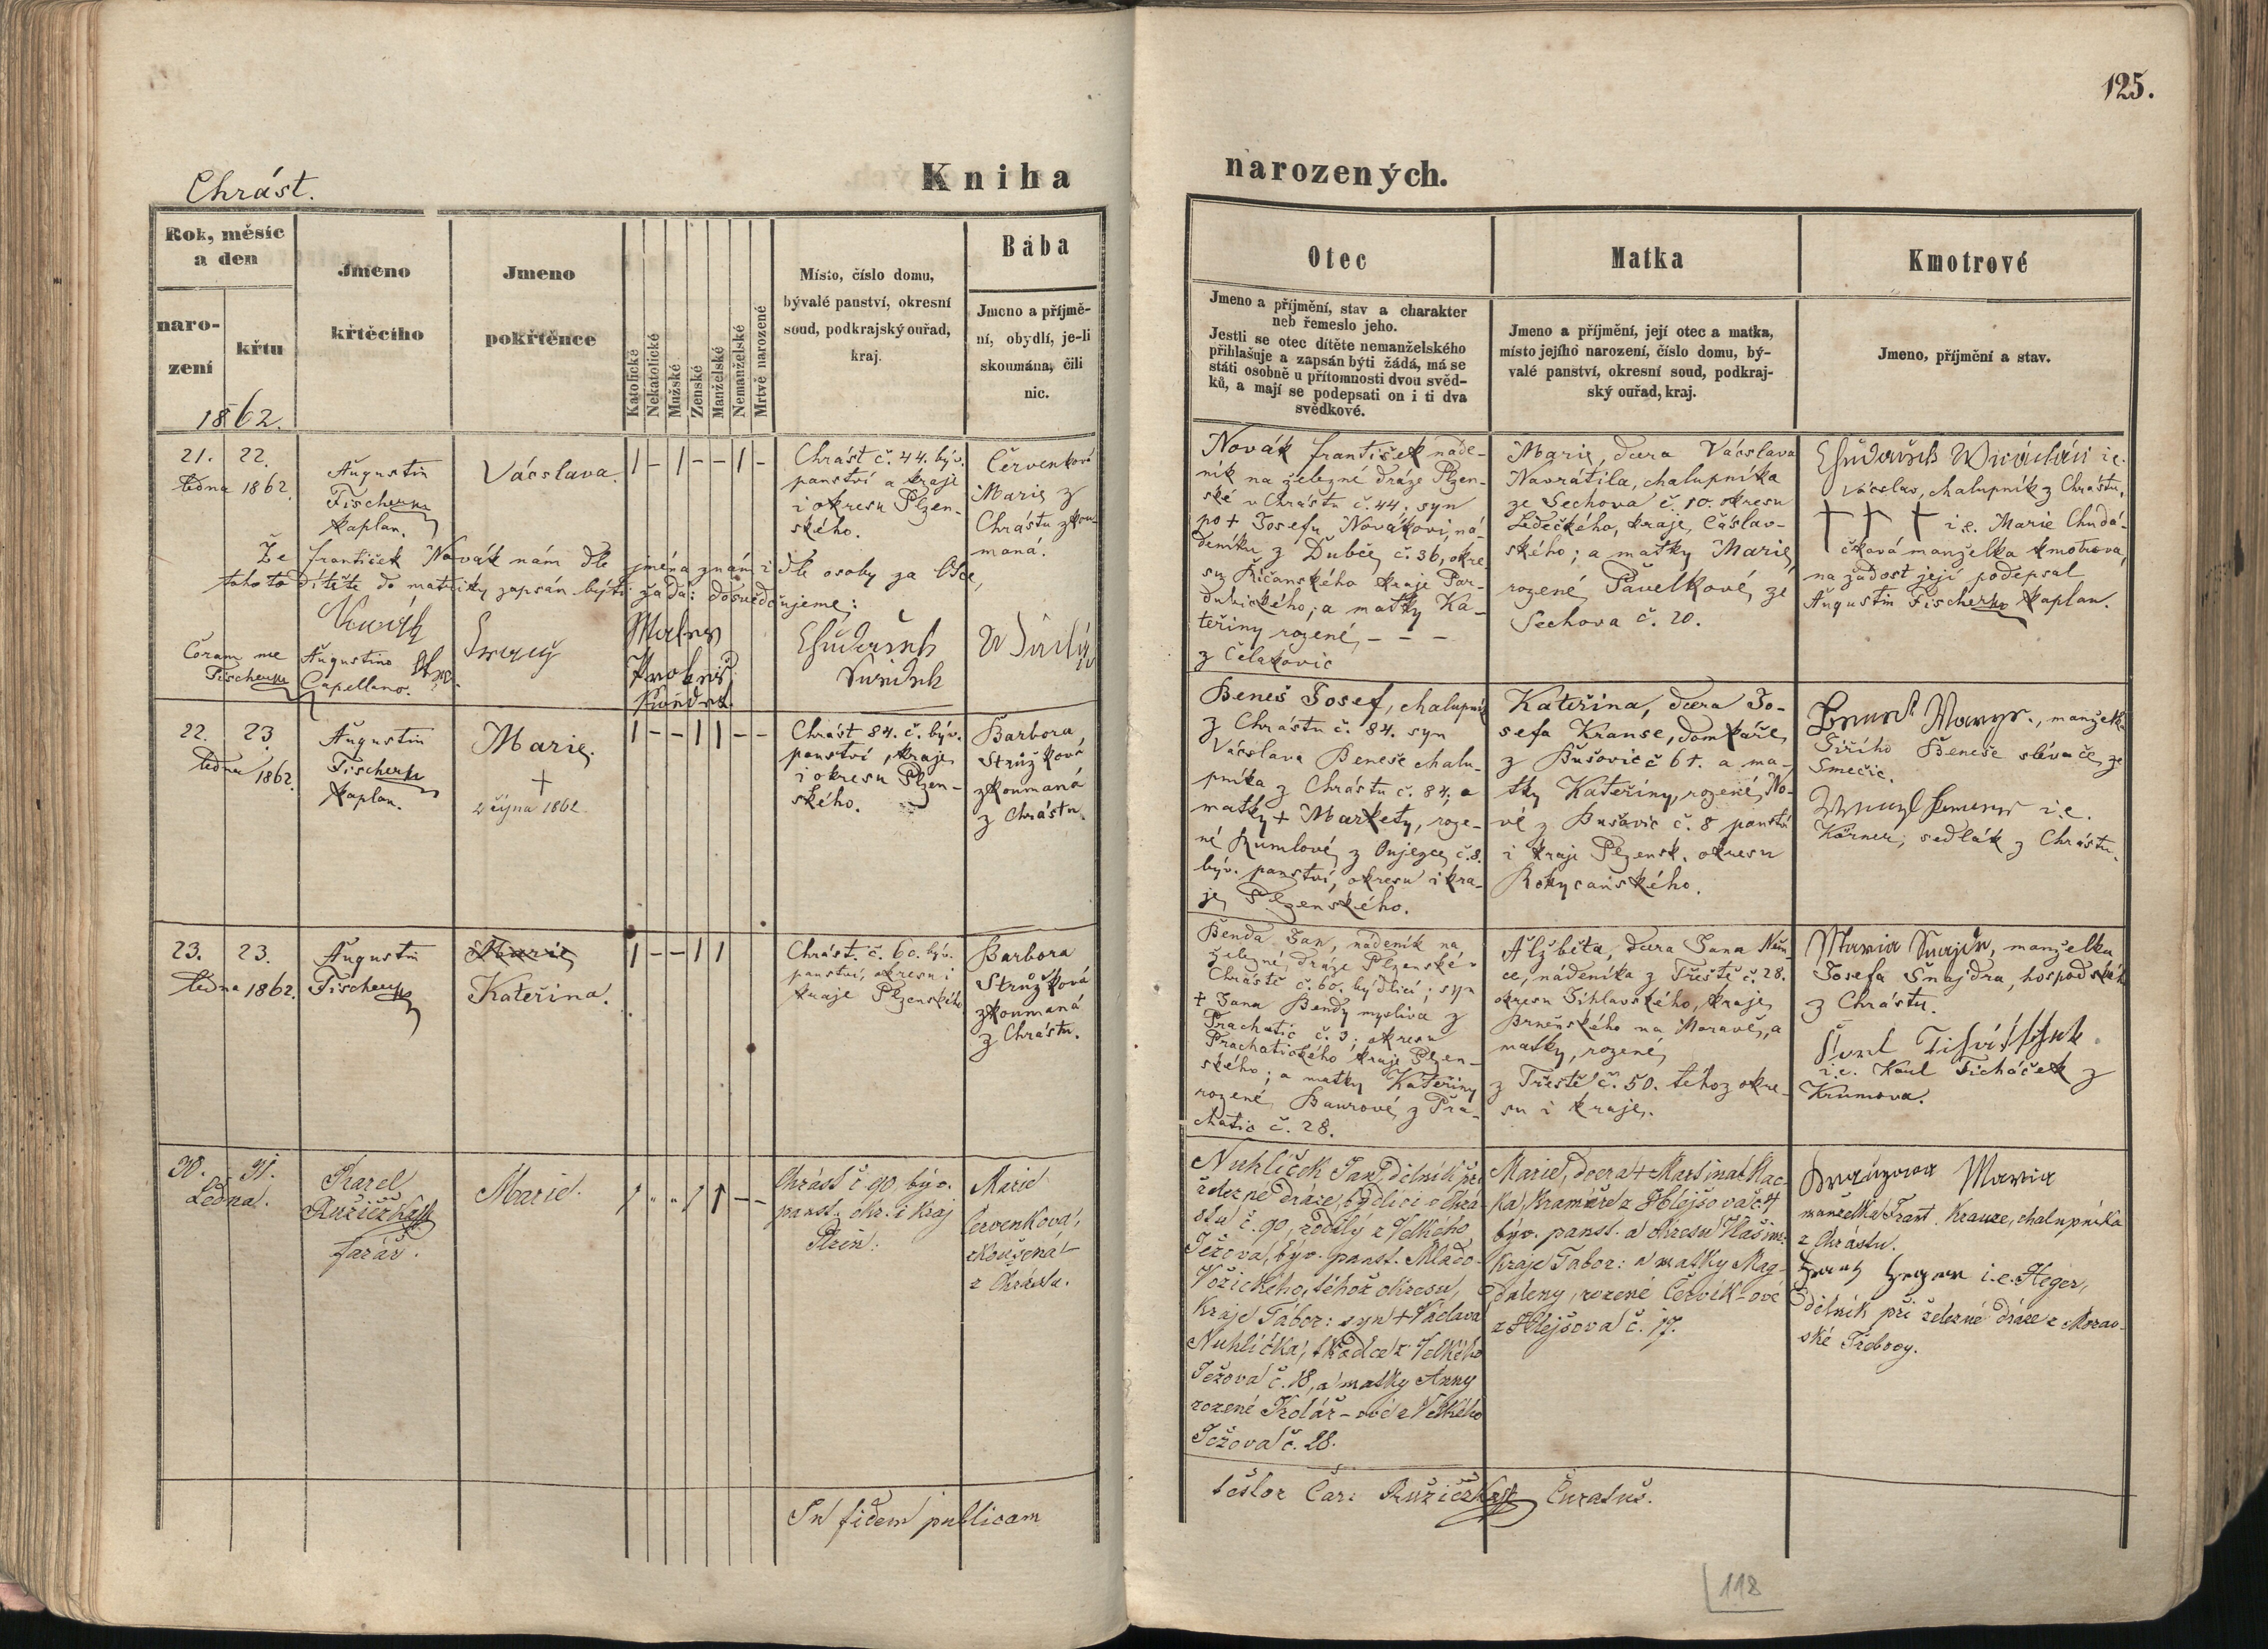 125.
Chrást.
Kniha
narozených.
Rok, měsíc
a den
naro-
zení
křtu
1862.
Jmeno
křtěcího
Jmeno
pokřtěnce
Katolické
Nekatolické
Mužské
Zenské
Manželské
Nemanželské
Mrtvě narozené
Místo, číslo domu,
bývalé panství, okresní
soud, podkrajský ouřad,
kraj.
Bába
Jmeno a příjmě-
ní, obydlí, je-li
skoumána, čili
nic.
Otec
Jmeno a příjmění, stav a charakter
neb řemeslo jeho.
Jestli se otec dítěte nemanželského
přihlašuje a zapsán býti žádá, má se
státi osobně u přítomnosti dvou svěd-
ků, a mají se podepsati on i ti dva
svědkové.
Matka
Jmeno a příjmění, její otec a matka,
místo jejího narození, číslo domu, bý-
valé panství, okresní soud, podkraj-
ský ouřad, kraj.
Kmotrové
Jmeno, příjmění a stav.
21. 22.
ledna 1862.
Augustin
Fischer
kaplan.
Vácslava
1 - 1 - - 1 -
Chrást č. 44. býv.
panství a kraje
i okresu Plzen-
ského.
Červenková
Marie z
Chrástu zkou-
maná.
Že František Novák nám dle jména znám i dle osoby za otce,
tohoto dítěte do matriky zapsán býti žádá: dosvědčujeme:
Coram me Augustino
Fischer Capellano.
Novák František náde-
ník na železné dráze Plzen-
ské v Chrástu č. 44; syn
po + Josefu Novákovi, ná-
deníku z Dubče č. 36, okre-
su Říčanského kraje Par-
dubického; a matky Ka-
teřiny rozené, - - -
z Čelakovic
Marie, dcera Vácslava
Navrátila, chalupníka
ze Sechova č. 10. okresu
Ledečkého, kraje, Čáslav-
ského; a matky Marie,
rozené Pavelkové, ze
Sechova č. 20.
i.e.
Vácslav, chalupník z Chrástu.
+ + + i.e. Marie Chudá-
čková manželka kmotrova,
na žádost její podepsal
Augustin Fischer kaplan.
22. 23.
ledna 1862.
Augustin
Fischer
kaplan.
Marie.
+
října 1862
1 - - 1 1 - -
Chrást 84. č. býv.
panství, kraje
i okresu Plzen-
ského.
Barbora
Strůžková
zkoumaná
z Chrástu.
Beneš Josef, chalupník
z Chrástu č. 84. syn
Vácslava Beneše chalu-
pníka z Chrástu č. 84, a
matky + Markety, roze-
né Rumlové z č. 8.
býv. panství, okresu i kra-
je Plzenského.
Kateřina, dcera Jo-
sefa Kranse, domkáře
z Bušovic č 61. a ma-
tky Kateřiny, rozené, No-
vé z Bušovic č. 8 panství
i kraje Plzensk. okresu
Rokycanského.
manželka
Jiřího Beneše slévače ze
Smečic.
i.e.
Körner, sedlák z Chrástu.
23. 23.
ledna 1862.
Augustin
Fischer
Marie
Kateřina.
1 - - 1 1
Chrást. č. 60. býv.
panství, okresu i
kraje Plzenského
Barbora
Strůžková
zkoumaná
z Chrástu.
Benda Jan, nádeník na
železné dráze Plzenské v
Chrástě č. 60. bydlící; syn
+ Jana Bendy myslivce z
Prachatic č. 3; okresu
Prachatického kraje Plzen-
ského; a matky Kateřiny
rozené Baurové z Pra-
chatic č. 28.
Alžběta, dcera Jana
nádeníka z Třeště č. 28.
okresu Jihlavského, kraje
Brněnského na Moravě, a
matky, rozené,
z Třeště č. 50. téhož okre-
su i kraje.
Maria Šnajdr, manželka
Josefa Šnajdra, hospodského
z Chrástu.
i.e. Karl Ticháček z
Krumova.
30. 31.
Ledna.
Karel
Růžička
farář.
Marie.
1 „ „ 1 1 - -
Chrást č 90 býv.
panst. okr. i kraj
Plzeň.
Marie
Červenková,
zkoušená
z Chrástu.
Nuhlíček Jan, dělník při
železné dráze, bydlící v Chrá-
stu č. 90, rodilý z Velkého
Ježova, býv. panst. Mlado-
Vožického, téhož okresu,
kraje Tábor: syn + Václava
Nuhlíčka, tkadlce z Velkého
Ježova č. 18, a matky Anny
rozené Kolář-ové z Velkého
Ježova č. 28.
Marie, dcera + Martina
kramáře z
býv. panst. a okresu Vlašim.
kraje Tabor: a matky Mag-
daleny, rozené Červík-ové
č. 17.
Krauzova Maria
manželka Frant. Krauze, chalupníka
z Chrástu.
i.e. Heger,
dělník při železné dráze z Morav-
ské Třebovy.
In fidem publicam
testor Car: Růžička Curatus.
118